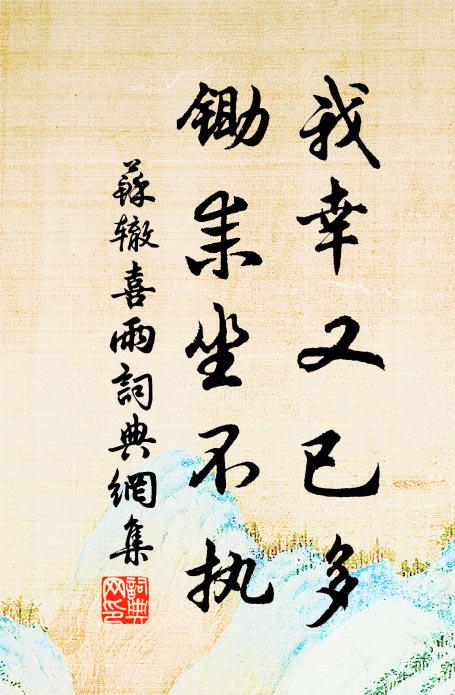 我幸又已多
锄耒坐不执
蘇辙喜雨詞典網集
詞典网印